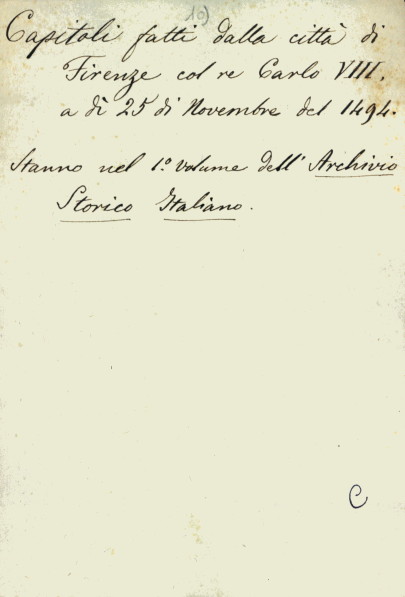 19)
Capitoli fatti dalla città di
Firenze col re Carlo VIII.
a dì 25 di Novembre del 1494.
Stanno nel 1.º volume dell' Archivio
Storico Italiano.
C